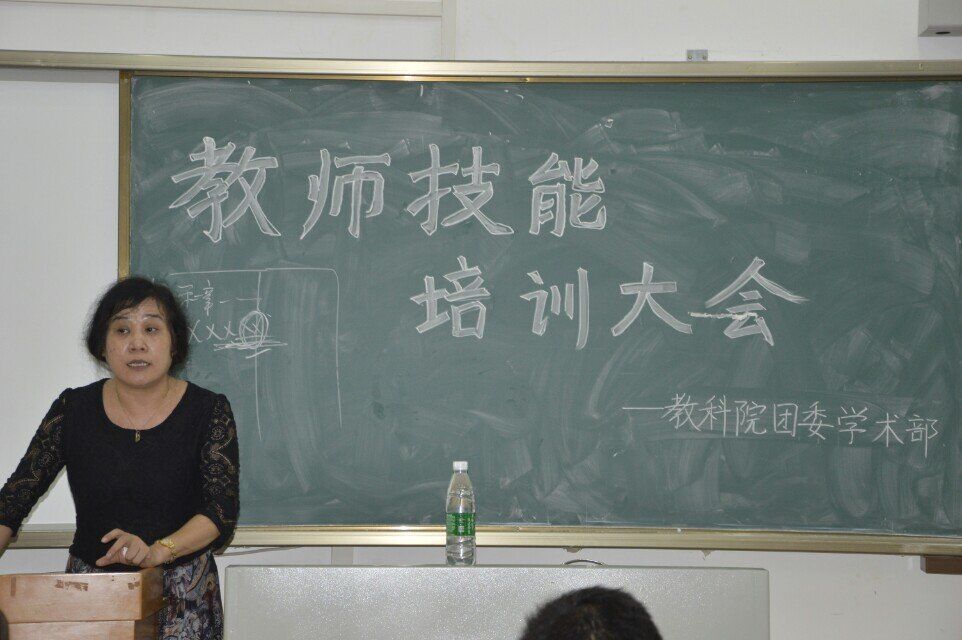 教师技能
培训大会
——教科院团委学术部
第一章
XXX